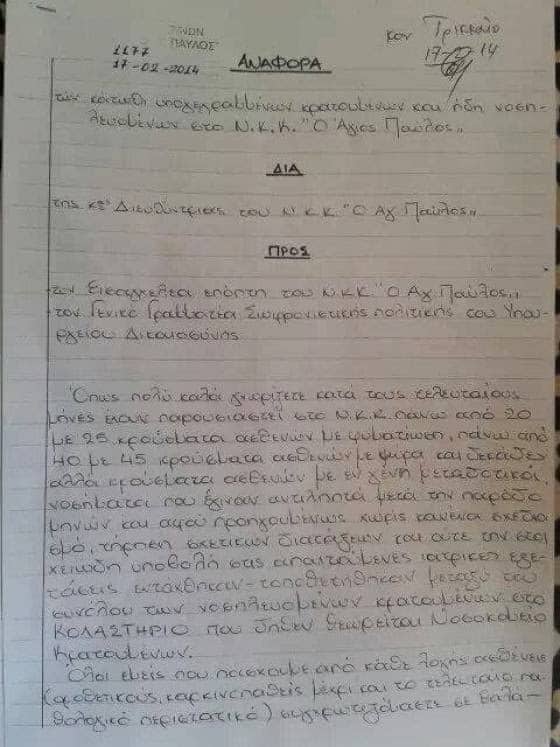 ΠΑΥΛΟΣ"
1177
17-02-2014
κον Τρίκκαλο
17/2/14
ΑΝΑΦΟΡΑ
των κάτωθι υπογεγραμμένων κρατουμένων και ήδη νοση-
λευομένων στο Ν.Κ.Κ. "Ο Άγιος Παύλος„
ΔΙΑ
της κας Διευθύντριας του Ν.Κ.Κ "Ο Αγ Παύλος„
ΠΡΟΣ
τον Εισαγγελέα επόπτη του Ν.Κ.Κ "Ο Αγ. Παύλος„
τον Γενικό Γραμματέα Σωφρονιστικής πολιτικής του Υπου-
ργείου Δικαιοσύνης
Όπως πολύ καλά γνωρίζετε κατά τους τελευταίους
μήνες έχουν παρουσιαστεί στο Ν.Κ.Κ πάνω από 20
με 25 κρούσματα ασθενών με φυματίωση, πάνω από
40 με 45 κρούσματα ασθενών με ψώρα και δεκάδες
άλλα κρούσματα ασθενών με εν γένη μεταδοτικά
νοσήματα που έγιναν αντιληπτά μετά την παρέδο
μηνών και αφού προηγουμένως χωρίς κανένα σχεδια
σμό, τήρηση σχετικών διατάξεων του ούτε την στοι
χειώδη υποβολή στις απαιτούμενες ιατρικές εξε-
τάσεις εντάχθηκαν-τοποθετήθηκαν μεταξύ του
συνόλου των νοσηλευομένων κρατουμένων στο
ΚΟΛΑΣΤΗΡΙΟ που δήθεν θεωρείται Νοσοκομείο
Κρατουμένων.
Όλοι εμείς που πάσχουμε από κάθε λογής ασθένεια
(οροθετικούς, καρκινοπαθείς μέχρι και το τελευταίο πα
θολογικό περιστατικό) συγχρωτιζόμαστε σε θαλά-